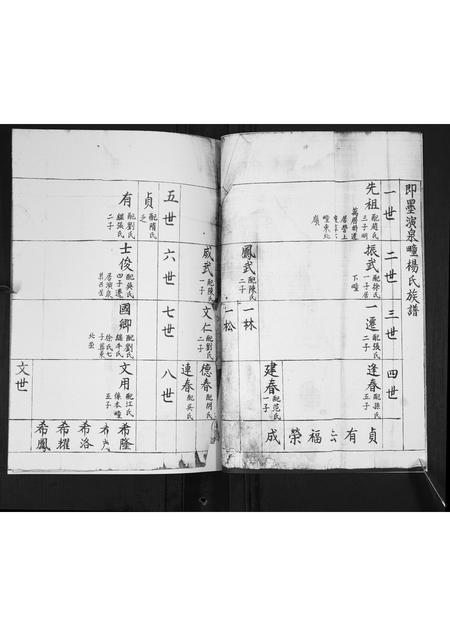 即墨演泉疃楊氏族譜
一世
先祖
配趙氏
三子明
萬曆時遷
二世
振武
配徐氏
一子居
下疃
鳳武
配陳氏
二子
威武
配陳氏
一子
三世
一遷
配張氏
二子
一林
一松
文仁
配劉氏
二子
四世
逢春
配孫氏
五子
建春
配范氏
一子
德春
配胡氏
連春
配吳氏
貞
有
六
福
榮
成
五世
貞
配隋氏
有
配劉氏
繼張氏
二子
六世
士俊
配吳氏
四子遷
居演泉
七世
國卿
配劉氏
繼平氏
徐氏七
北
八世
文用
配江氏
係本疃
五子
文世
希隆
希洛
希耀
希鳳